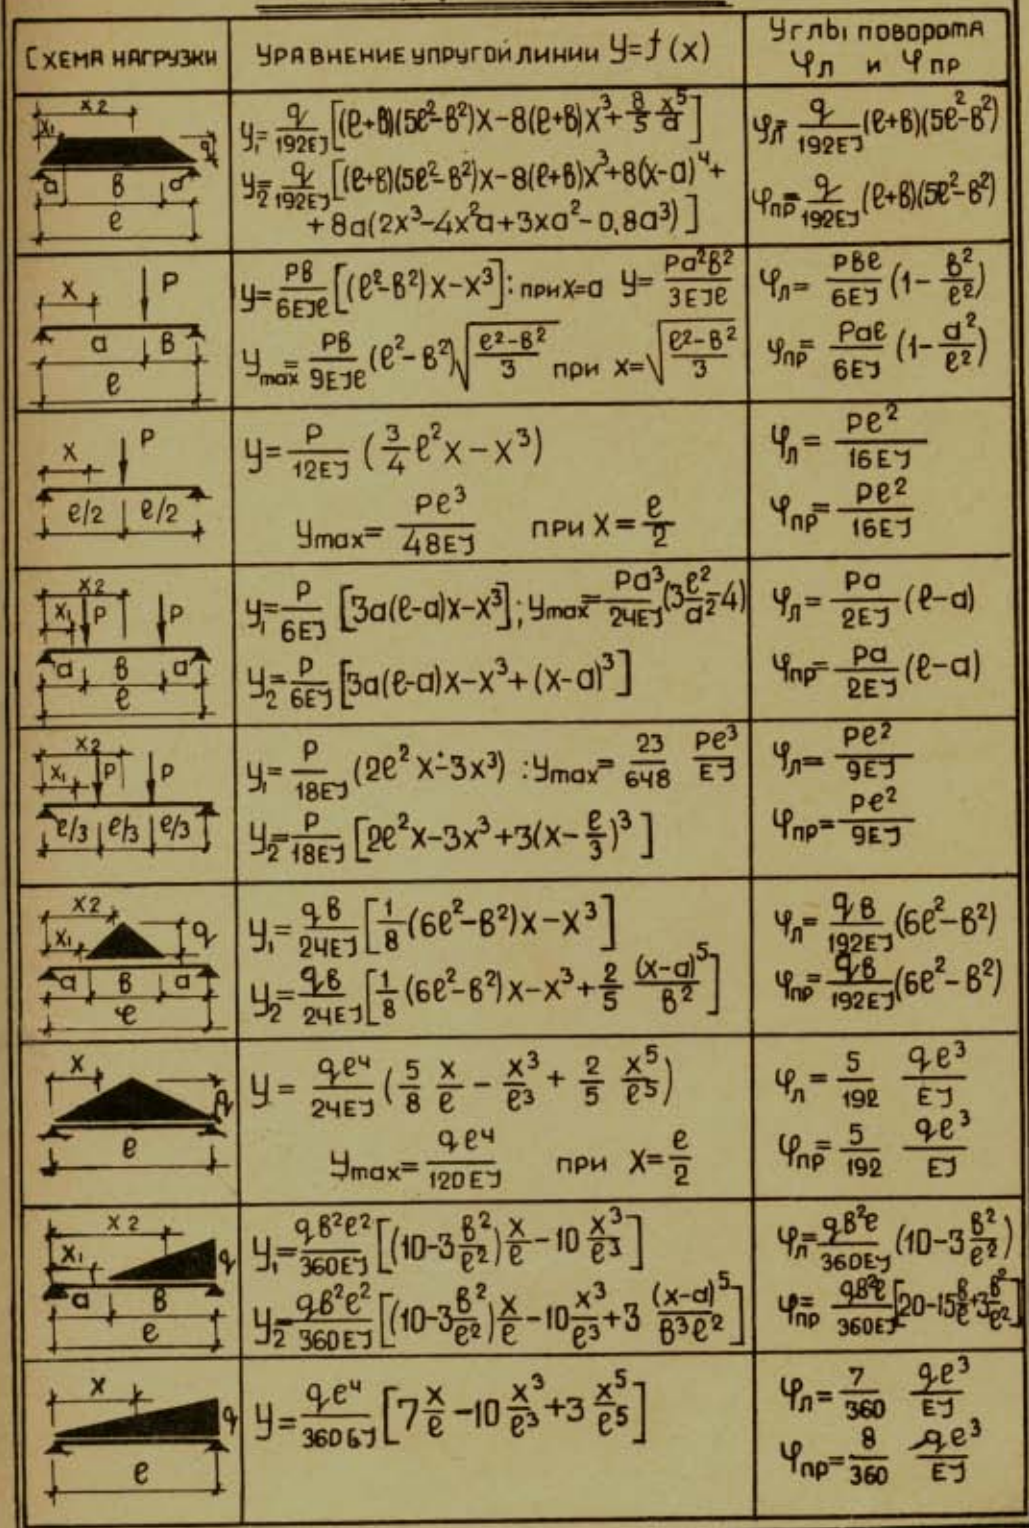 Схема нагрузки
Уравнение упругой линии y=f(x)
Углы поворота
φл и φпр
x2
x1
q
a в a
ℓ
y1= q/192EJ [(ℓ+в)(5ℓ²-в²)x-8(ℓ+в)x³+ 8/5 x⁵/a]
y2= q/192EJ [(ℓ+в)(5ℓ²-в²)x-8(ℓ+в)x³+8(x-a)⁴+
+8a(2x³-4x²a+3xa²-0,8a³)]
φл= q/192EJ (ℓ+в)(5ℓ²-в²)
φпр= q/192EJ (ℓ+в)(5ℓ²-в²)
x P
a в
ℓ
y= Pв/6EJℓ [(ℓ²-в²)x-x³]: при x=a y= Pa²в²/3EJℓ
ymax= Pв/9EJℓ (ℓ²-в²)√(ℓ²-в²/3) при x=√(ℓ²-в²/3)
φл= Pвℓ/6EJ (1- в²/ℓ²)
φпр= Paℓ/6EJ (1- a²/ℓ²)
x P
ℓ/2 ℓ/2
y= P/12EJ (3/4 ℓ²x-x³)
ymax= Pℓ³/48EJ при x= ℓ/2
φл= Pℓ²/16EJ
φпр= Pℓ²/16EJ
x2
x1 P P
a в a
ℓ
y1= P/6EJ [3a(ℓ-a)x-x³]; ymax= Pa³/24EJ (3 ℓ²/a² -4)
y2= P/6EJ [3a(ℓ-a)x-x³+(x-a)³]
φл= Pa/2EJ (ℓ-a)
φпр= Pa/2EJ (ℓ-a)
x2
x1 P P
ℓ/3 ℓ/3 ℓ/3
y1= P/18EJ (2ℓ²x-3x³) : ymax= 23/648 Pℓ³/EJ
y2= P/18EJ [2ℓ²x-3x³+3(x- ℓ/3)³]
φл= Pℓ²/9EJ
φпр= Pℓ²/9EJ
x2
x1 q
a в a
ℓ
y1= qв/24EJ [1/8 (6ℓ²-в²)x-x³]
y2= qв/24EJ [1/8 (6ℓ²-в²)x-x³+ 2/5 (x-a)⁵/в²]
φл= qв/192EJ (6ℓ²-в²)
φпр= qв/192EJ (6ℓ²-в²)
x
q
ℓ
y= qℓ⁴/24EJ (5/8 x/ℓ - x³/ℓ³ + 2/5 x⁵/ℓ⁵)
ymax= qℓ⁴/120EJ при x= ℓ/2
φл= 5/192 qℓ³/EJ
φпр= 5/192 qℓ³/EJ
x2
x1 q
a в
ℓ
y1= qв²ℓ²/360EJ [(10-3 в²/ℓ²) x/ℓ -10 x³/ℓ³]
y2= qв²ℓ²/360EJ [(10-3 в²/ℓ²) x/ℓ -10 x³/ℓ³ +3 (x-a)⁵/в³ℓ²]
φл= qв²ℓ/360EJ (10-3 в²/ℓ²)
φпр= qв²ℓ/360EJ [20-15 в/ℓ +3 в²/ℓ²]
x
q
ℓ
y= qℓ⁴/360БJ [7 x/ℓ -10 x³/ℓ³ +3 x⁵/ℓ⁵]
φл= 7/360 qℓ³/EJ
φпр= 8/360 qℓ³/EJ